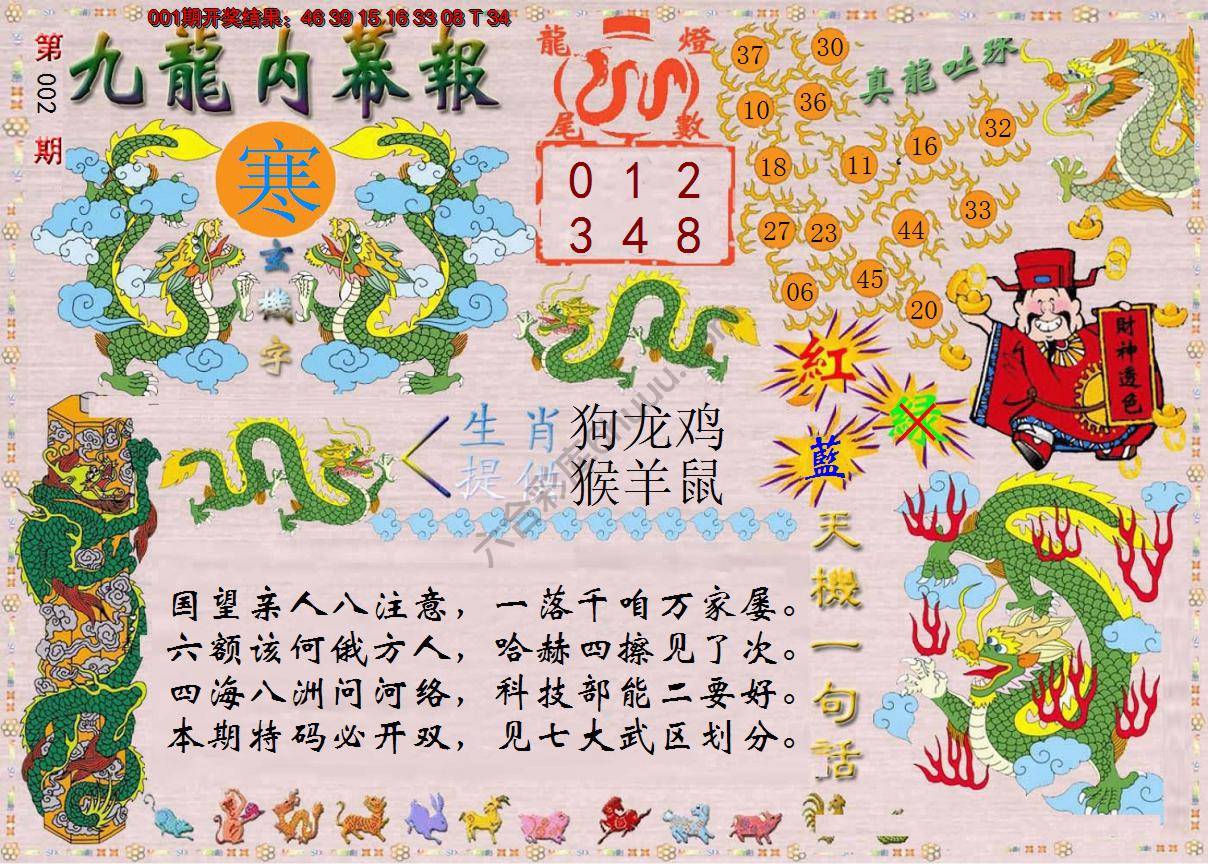 001期开奖结果：46 39 15 16 33 08 T 34
第002期
九龍内幕報
寒
玄機字
龍燈
尾數
0 1 2
3 4 8
真龍吐珠
37 30
10 36
32
16
18 11
33
27 23 44
45
06
20
財神透色
紅
绿
藍
生肖 狗龙鸡
提供 猴羊鼠
天機一句話
国望亲人八注意，一落千咱万家屡。
六额该何俄方人，哈赫四擦见了次。
四海八洲问河络，科技部能二要好。
本期特码必开双，见七大武区划分。